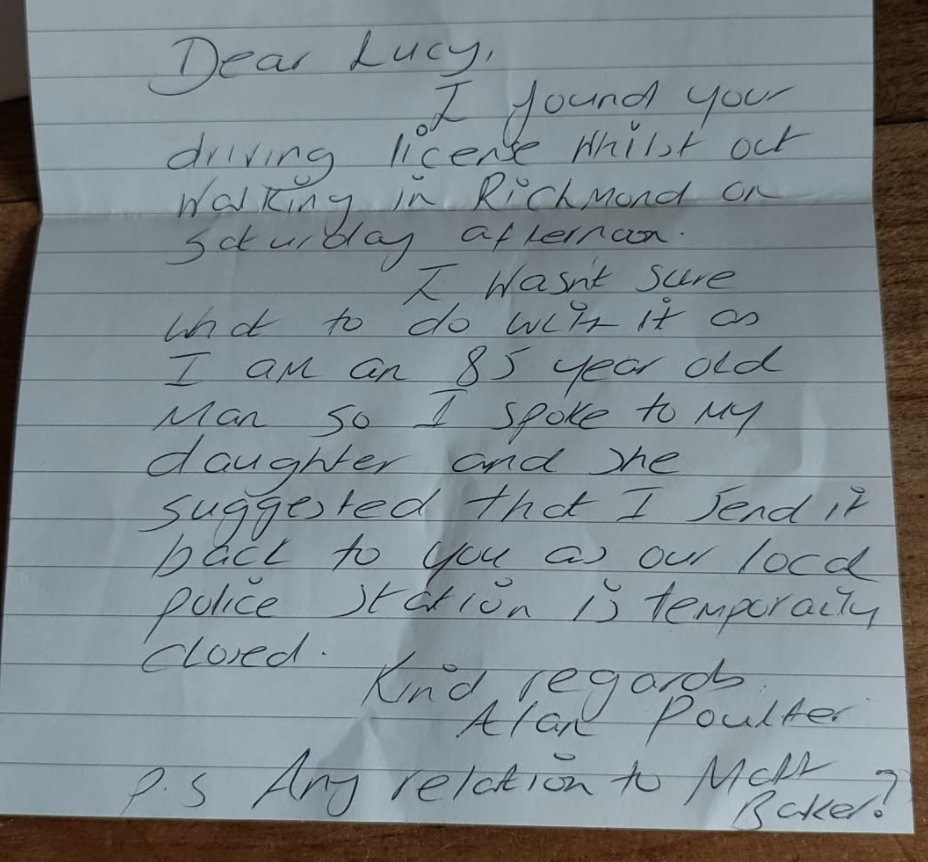 Dear Lucy,
I found your
driving license whilst out
walking in Richmond on
saturday afternoon.
I wasn't sure
what to do with it as
I am an 85 year old
man so I spoke to my
daughter and she
suggested that I send it
back to you as our local
police station is temporarily
closed.
Kind regards
Alan Poulter
P.S Any relation to Matt
Baker?